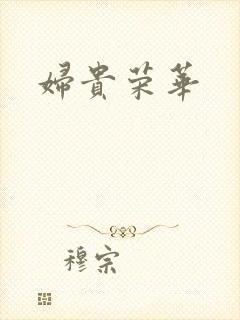 婦貴荣華
穆宗